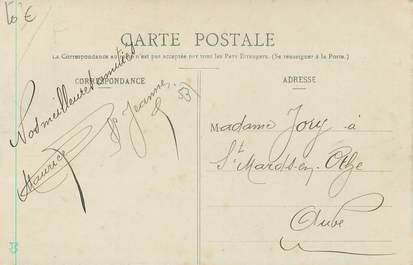 10 €
CARTE POSTALE
La Correspondance au recto n'est pas acceptée par tous les Pays Étrangers. (Se renseigner à la Poste.)
CORRESPONDANCE
Nos meilleures amitiés
Maurice & Jeanne
53
ADRESSE
Madame Jory à
St Mards-en-Othe
Aube